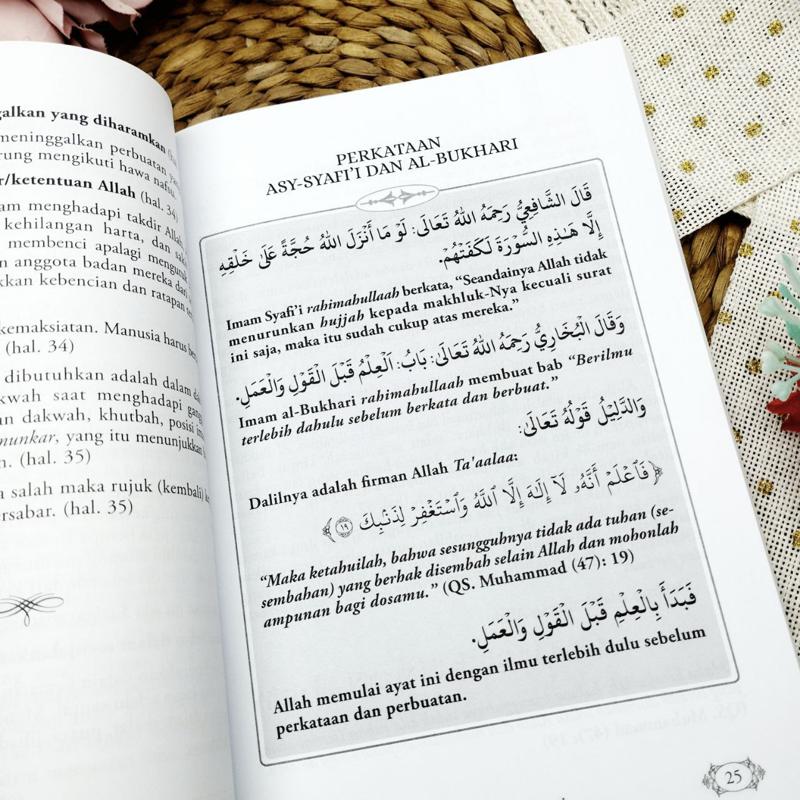 galkan yang diharamkan
meninggalkan perbuatan
rung mengikuti hawa nafsu
r/ketentuan Allah (hal. 34)
am menghadapi takdir Allah,
kehilangan harta, dan
membenci apalagi
n anggota badan mereka dari
kkan kebencian dan ratapan
kemaksiatan. Manusia harus
(hal. 34)
dibutuhkan adalah dalam
kwah saat menghadapi
an dakwah, khutbah, posisi
munkar, yang itu menunjukkan
n. (hal. 35)
a salah maka rujuk (kembali)
ersabar. (hal. 35)
PERKATAAN
ASY-SYAFI'I DAN AL-BUKHARI
قَالَ الشَّافِعِيُّ رَحِمَهُ اللهُ تَعَالَى: لَوْ مَا أَنْزَلَ اللهُ حُجَّةً عَلَى خَلْقِهِ
إِلَّا هَـٰذِهِ السُّوْرَةَ لَكَفَتْهُمْ.
Imam Syafi'i rahimahullaah berkata, “Seandainya Allah tidak
menurunkan hujjah kepada makhluk-Nya kecuali surat
ini saja, maka itu sudah cukup atas mereka.”
وَقَالَ الْبُخَارِيُّ رَحِمَهُ اللهُ تَعَالَى: بَابُ: اَلْعِلْمُ قَبْلَ الْقَوْلِ وَالْعَمَلِ.
Imam al-Bukhari rahimahullaah membuat bab “Berilmu
terlebih dahulu sebelum berkata dan berbuat.”
وَالدَّلِيْلُ قَوْلُهُ تَعَالَى:
Dalilnya adalah firman Allah Ta'aalaa:
﴿فَٱعْلَمْ أَنَّهُۥ لَآ إِلَـٰهَ إِلَّا ٱللَّهُ وَٱسْتَغْفِرْ لِذَنۢبِكَ ١٩﴾
“Maka ketahuilah, bahwa sesungguhnya tidak ada tuhan (se-
sembahan) yang berhak disembah selain Allah dan mohonlah
ampunan bagi dosamu.” (QS. Muhammad (47): 19)
فَبَدَأَ بِالْعِلْمِ قَبْلَ الْقَوْلِ وَالْعَمَلِ.
Allah memulai ayat ini dengan ilmu terlebih dulu sebelum
perkataan dan perbuatan.
25